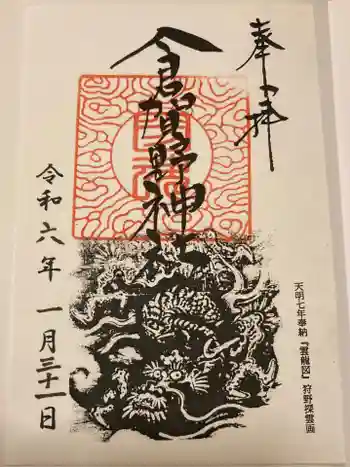 奉拝
倉賀野神社
令和六年 一月三十一日
天明七年奉納『雲龍図』狩野探雲画